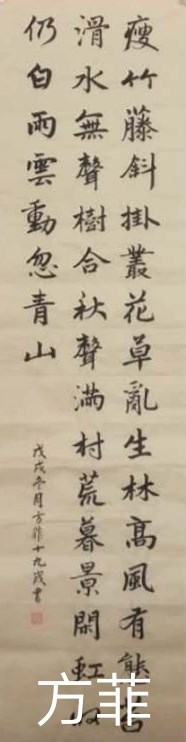 瘦竹藤斜掛叢花草亂生林高風有態苔
滑水無聲樹合秋聲滿村荒暮景閑虹收
仍白雨雲動忽青山
戊戌冬月方菲十九歲書
方菲